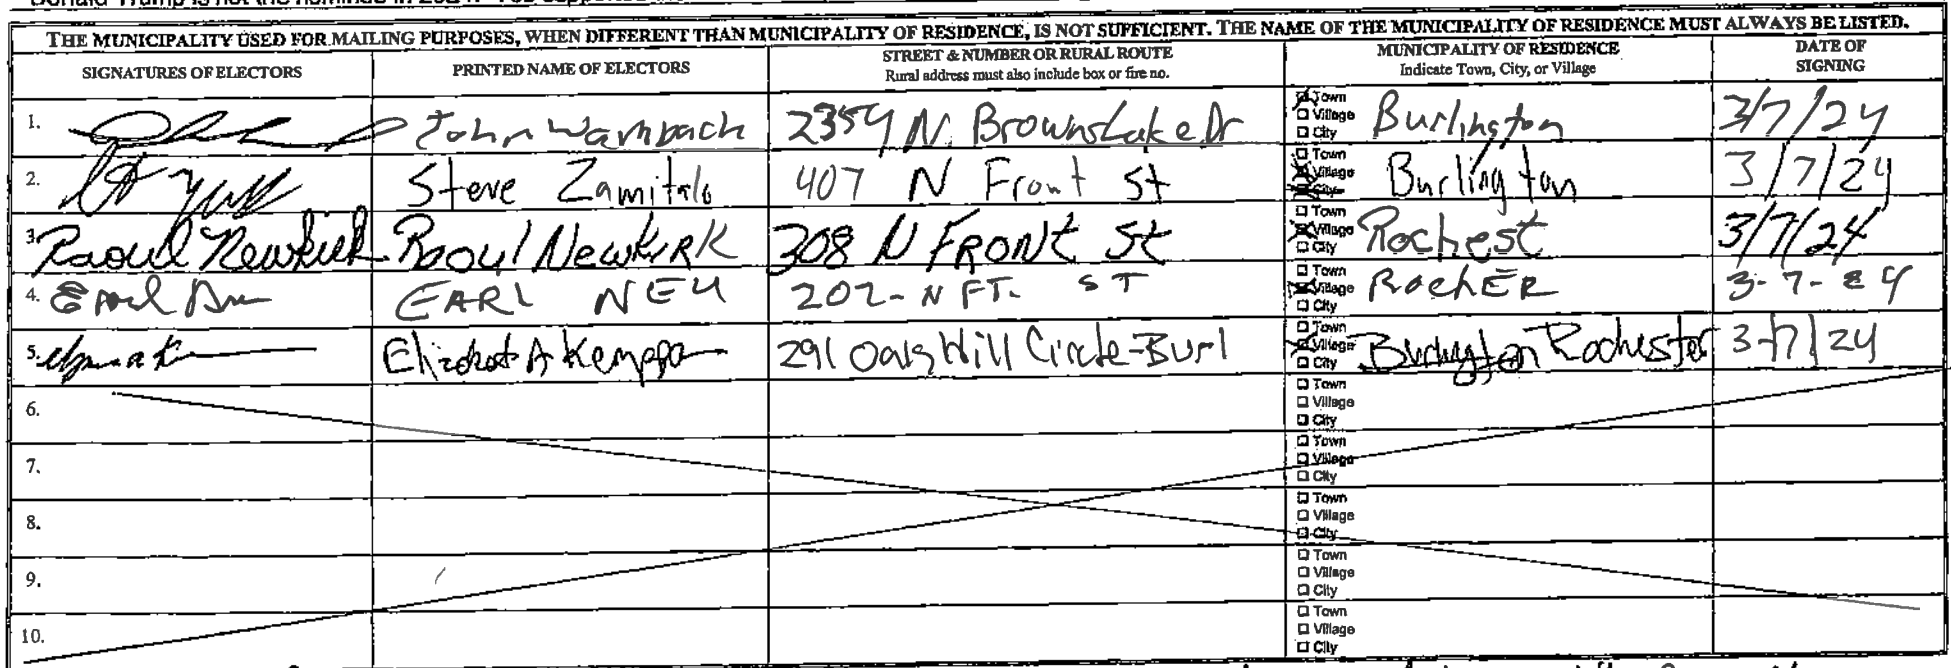 Donald Trump is not the nominee in 2024.
THE MUNICIPALITY USED FOR MAILING PURPOSES, WHEN DIFFERENT THAN MUNICIPALITY OF RESIDENCE, IS NOT SUFFICIENT. THE NAME OF THE MUNICIPALITY OF RESIDENCE MUST ALWAYS BE LISTED.
SIGNATURES OF ELECTORS
PRINTED NAME OF ELECTORS
STREET & NUMBER OR RURAL ROUTE
Rural address must also include box or fire no.
MUNICIPALITY OF RESIDENCE
Indicate Town, City, or Village
DATE OF
SIGNING
1. John Wambach 2354 N. Browns Lake Dr
Town
Village
City
Burlington 3/7/24
2. Steve Zamitalo 407 N Front St
Town
Village
City
Burlington 3/7/24
3. Raoul Newkirk Raoul Newkirk 308 N FRONt St
Town
Village
City
Rochest 3/7/24
4. Earl EARL NEU 202-N FT. ST
Town
Village
City
RochER 3-7-24
5. A 291 Oaks Hill Circle-Burl
Town
Village
City
Burlington Rochester 3/7/24
6.
Town
Village
City
7.
Town
Village
City
8.
Town
Village
City
9.
Town
Village
City
10.
Town
Village
City